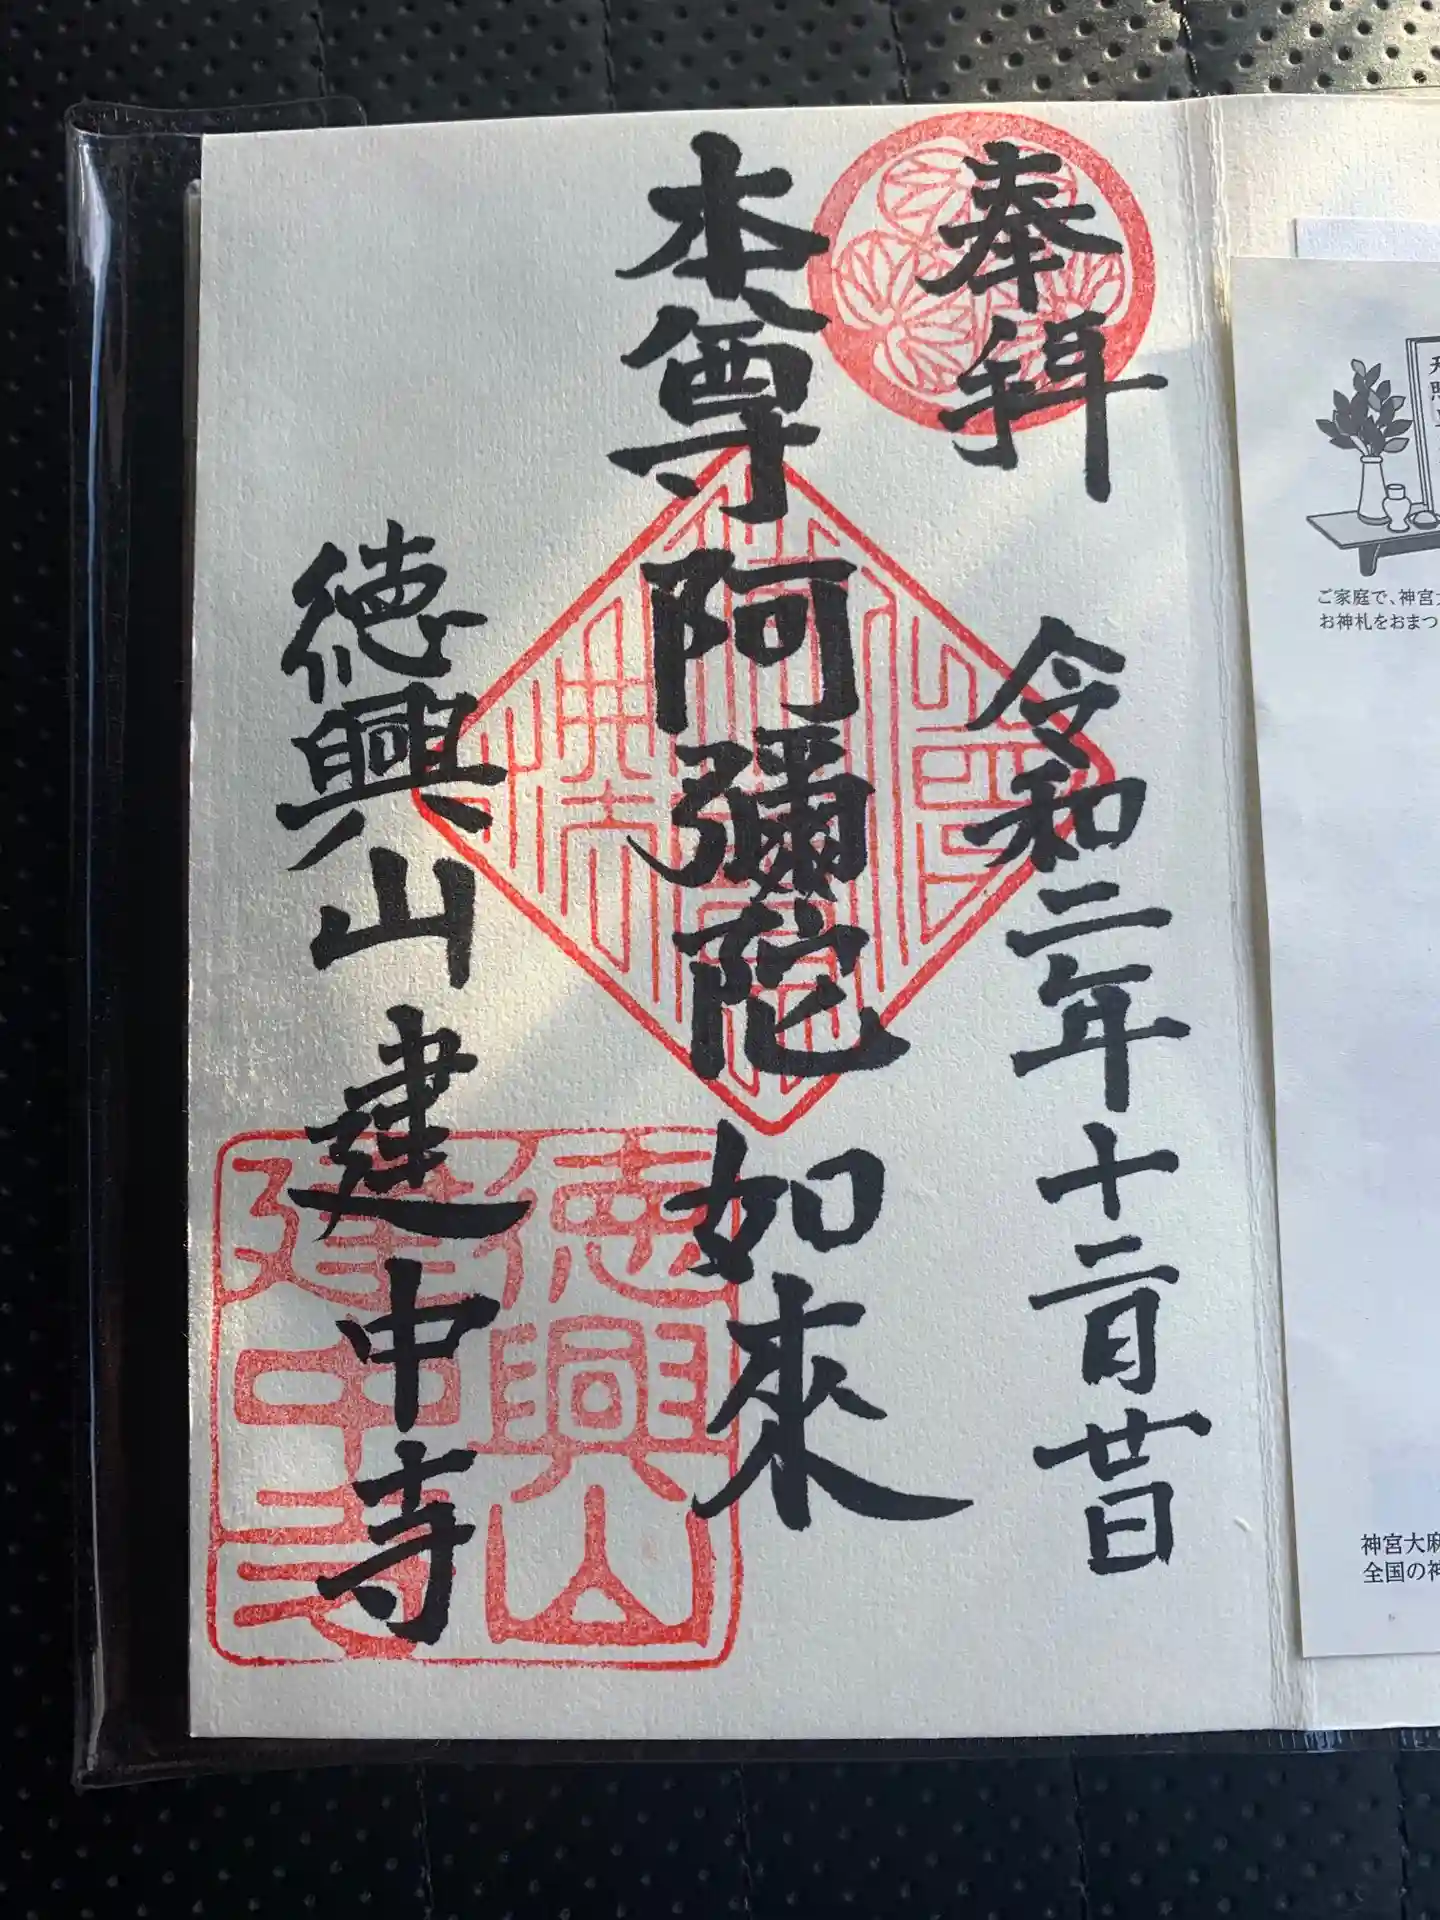 奉拝
令和二年十二月廿日
本尊阿彌陀如來
徳興山建中寺
徳興山
建中寺
ご家庭で、神宮大
お神札をおまつ
神宮大麻
全国の神